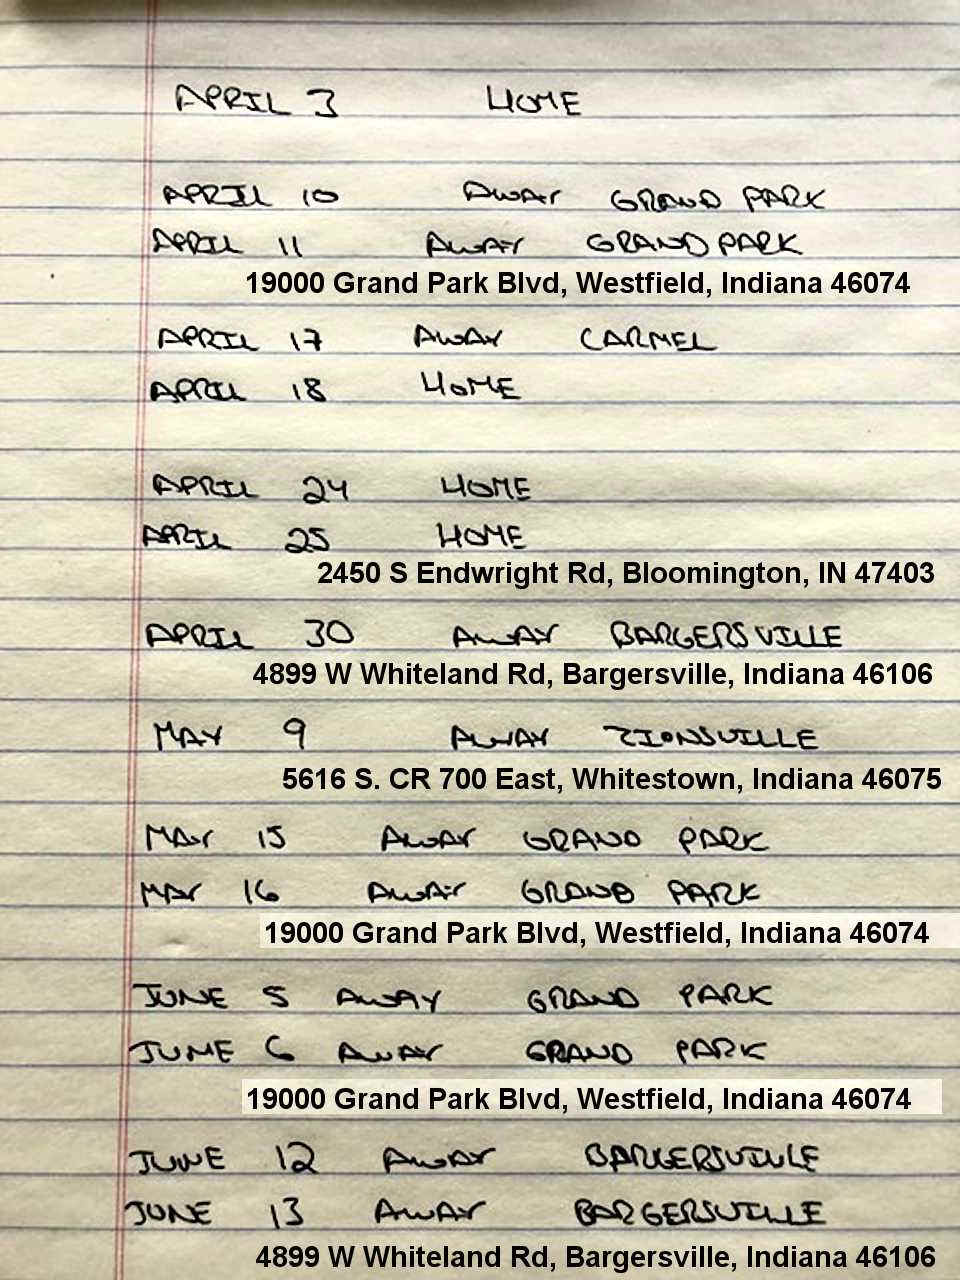 APRIL 3 HOME
APRIL 10 AWAY GRAND PARK
APRIL 11 AWAY GRAND PARK
19000 Grand Park Blvd, Westfield, Indiana 46074
APRIL 17 AWAY CARMEL
APRIL 18 HOME
APRIL 24 HOME
APRIL 25 HOME
2450 S Endwright Rd, Bloomington, IN 47403
APRIL 30 AWAY BARGERSVILLE
4899 W Whiteland Rd, Bargersville, Indiana 46106
MAY 9 AWAY ZIONSVILLE
5616 S. CR 700 East, Whitestown, Indiana 46075
MAY 15 AWAY GRAND PARK
MAY 16 AWAY GRAND PARK
19000 Grand Park Blvd, Westfield, Indiana 46074
JUNE 5 AWAY GRAND PARK
JUNE 6 AWAY GRAND PARK
19000 Grand Park Blvd, Westfield, Indiana 46074
JUNE 12 AWAY BARGERSVILLE
JUNE 13 AWAY BARGERSVILLE
4899 W Whiteland Rd, Bargersville, Indiana 46106